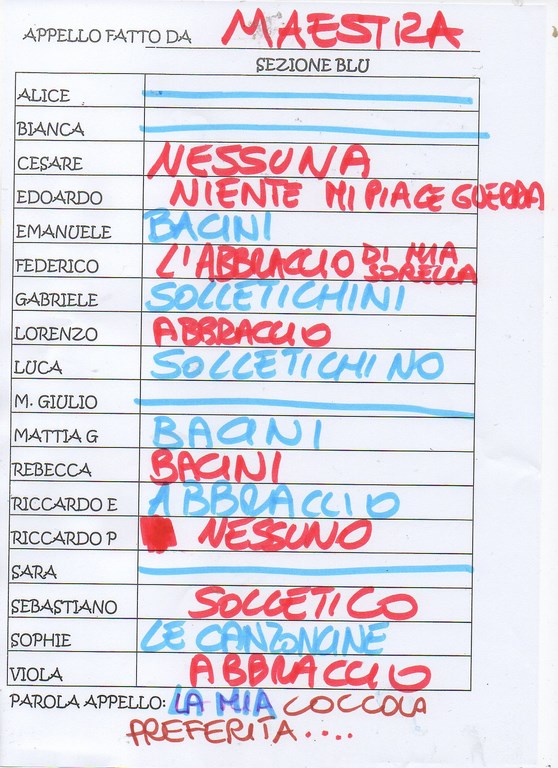 APPELLO FATTO DA MAESTRA
SEZIONE BLU
ALICE
BIANCA
CESARE NESSUNA
EDOARDO NIENTE MI PIACE GUERRA
EMANUELE BACINI
FEDERICO L'ABBRACCIO DI MIA SORELLA
GABRIELE SOLLETICHINI
LORENZO ABBRACCIO
LUCA SOLLETICHINO
M. GIULIO
MATTIA G BACINI
REBECCA BACINI
RICCARDO E ABBRACCIO
RICCARDO P NESSUNO
SARA
SEBASTIANO SOLLETICO
SOPHIE LE CANZONCINE
VIOLA ABBRACCIO
PAROLA APPELLO: LA MIA COCCOLA
PREFERITA....